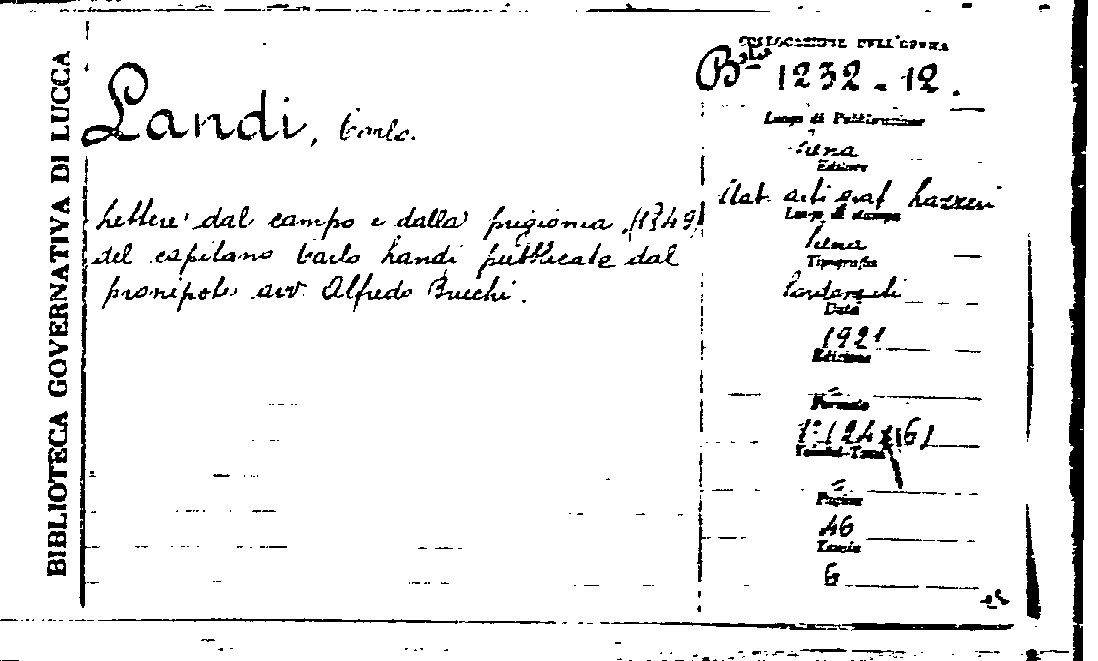 BIBLIOTECA GOVERNATIVA DI LUCCA
Landi, Carlo.
Lettere dal campo e dalla prigionia (1849)
del capitano Carlo Landi pubblicate dal
pronipote avv. Alfredo Bruchi.
COLLOCAZIONE DELL'OPERA
1232-12.
Luogo di Pubblicazione
Siena
Editore
Stab. arti graf Lazzeri
Luogo di stampa
Siena
Tipografia
Data
1921
Edizione
Formato
Volumi-Tomi
Pagine
46
6